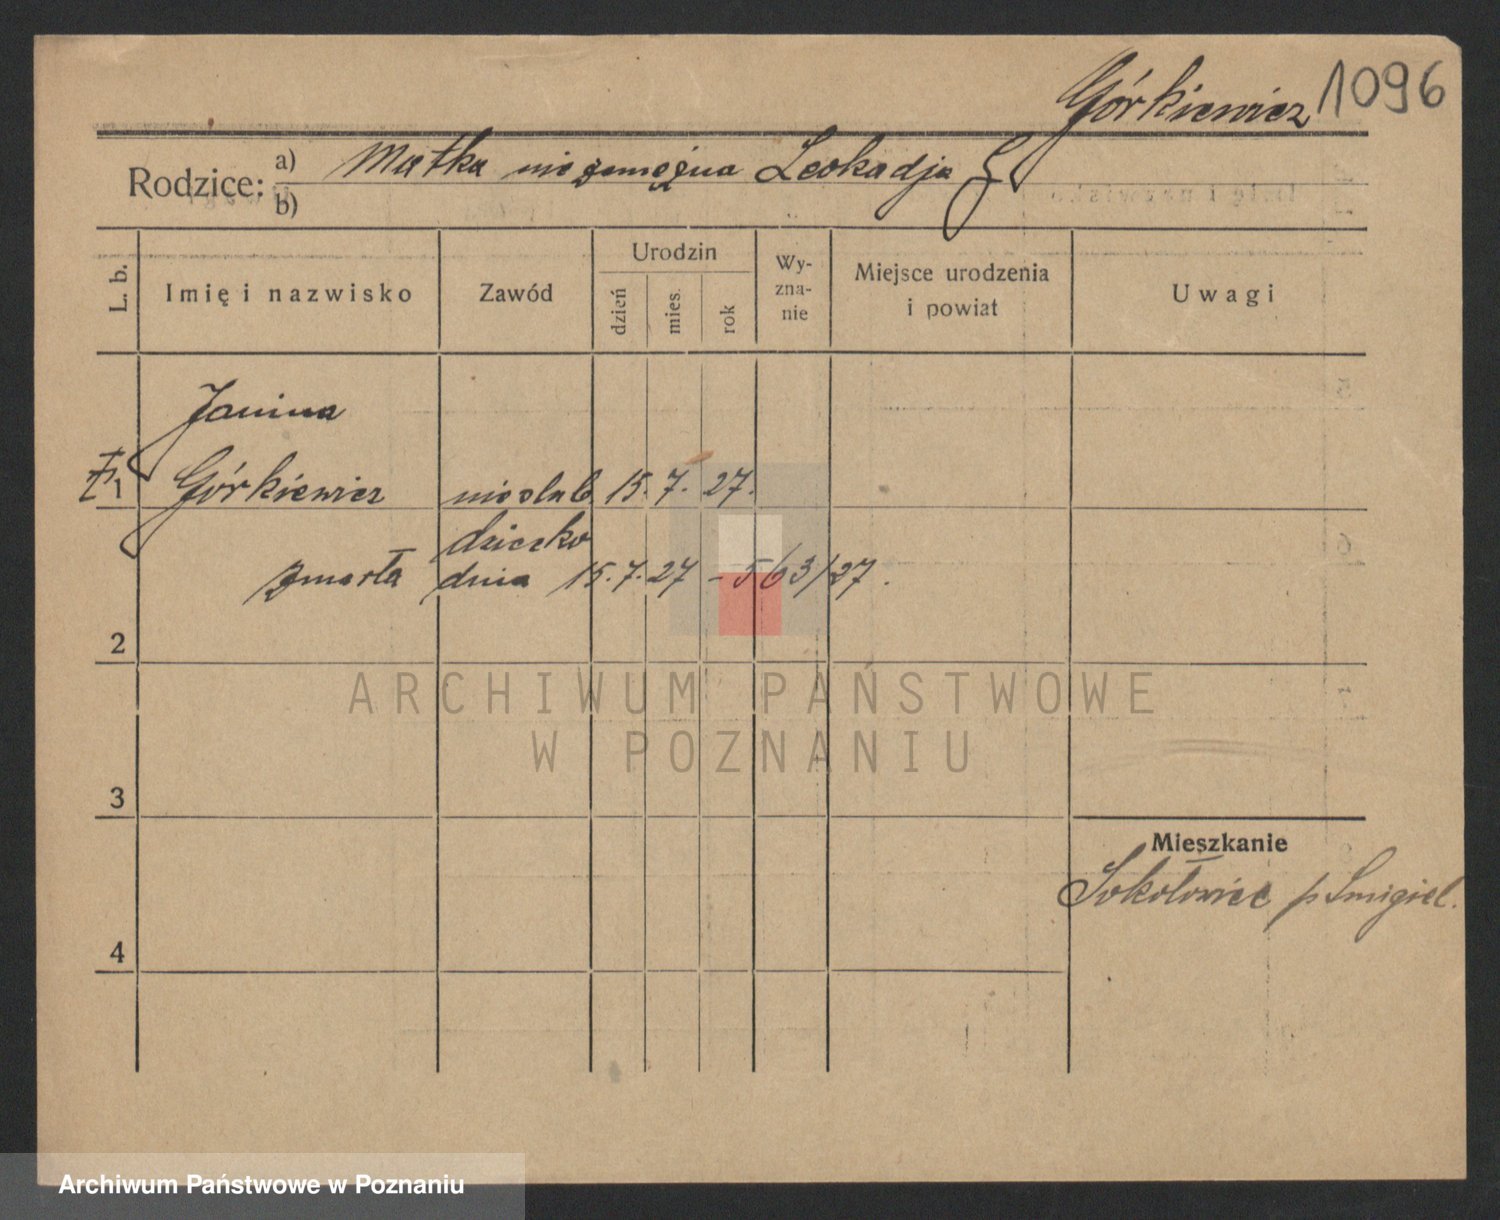 Górkiewicz 1096
Rodzice: a) Matka niezamężna Leokadja G
b)
L. b.
Imię i nazwisko
Zawód
Urodzin
dzień
mies.
rok
Wy-
zna-
nie
Miejsce urodzenia
i powiat
Uwagi
Janina
1 Górkiewicz nieślub. 15. 7. 27.
dziecko
zmarła dnia 15.7.27 – 563/27.
2
ARCHIWUM PAŃSTWOWE
W POZNANIU
3
Mieszkanie
Sokołowice p Smigiel.
4
Archiwum Państwowe w Poznaniu